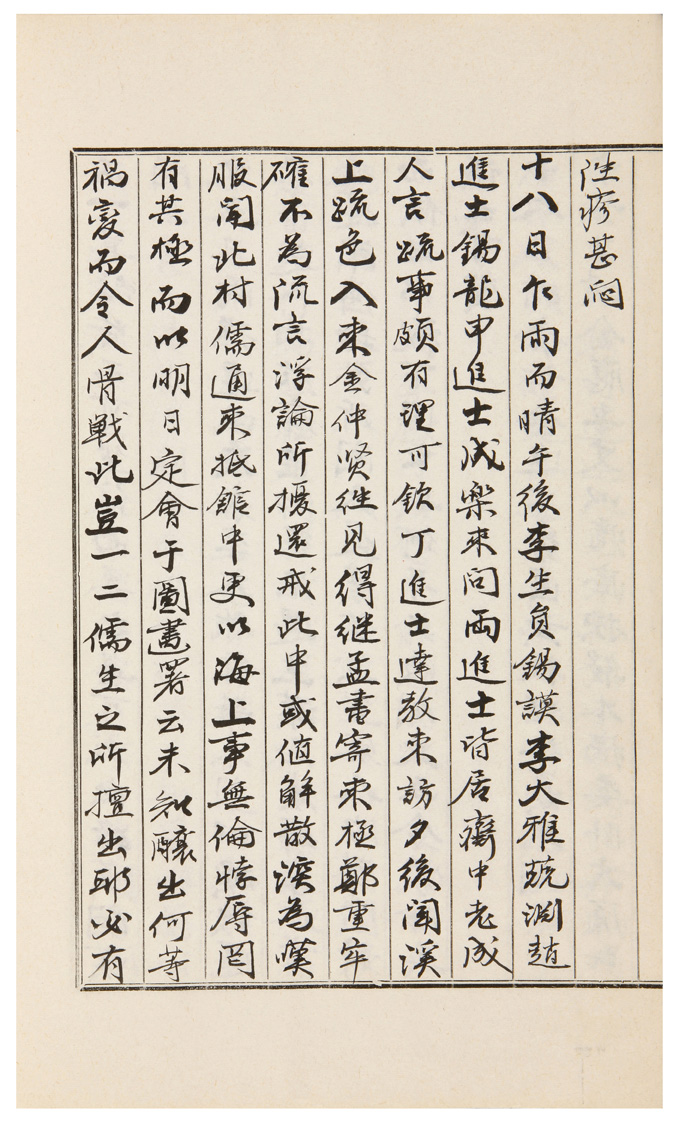 陞疹甚悶
十八日乍雨而晴午後李生員錫謨李大雅兢淵趙
進士錫龍申進士成樂來問兩進士皆居齋中老成
人言疏事頗有理可欽丁進士達教來訪夕後聞溪
上疏色入來金仲賢往見得継孟書寄來極鄭重牢
確不為流言浮論所擾還戒此中或値解散深為嘆
服聞此村儒通來抵館中更以海上事無倫悖辱罔
有其極而以明日定會于圖畫署云未知釀出何等
禍變而令人骨戰此豈一二儒生之所擅出耶必有